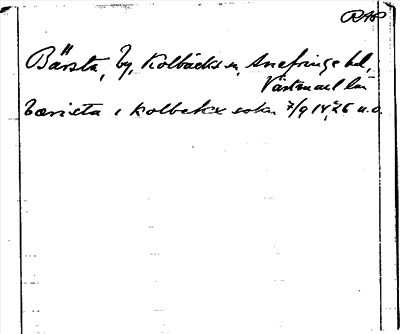 RAP
Bärsta, by, Kolbäcks sn, Snefringe hd,
Västmanl län
bærista i kolbekx sokn 7/9 1426 u.o.